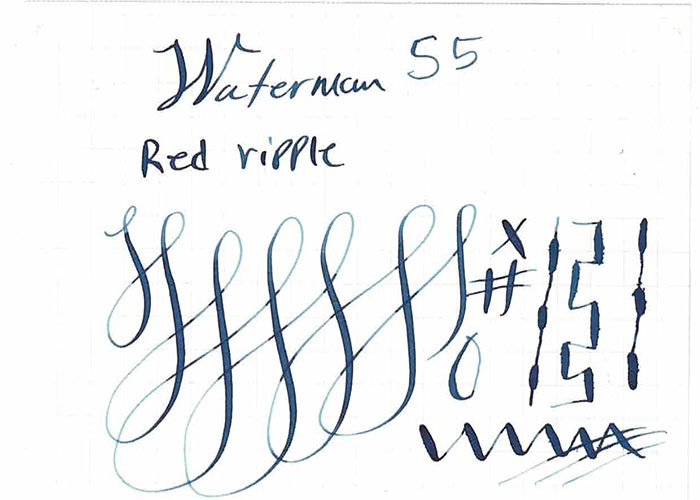 Waterman 55
Red ripple